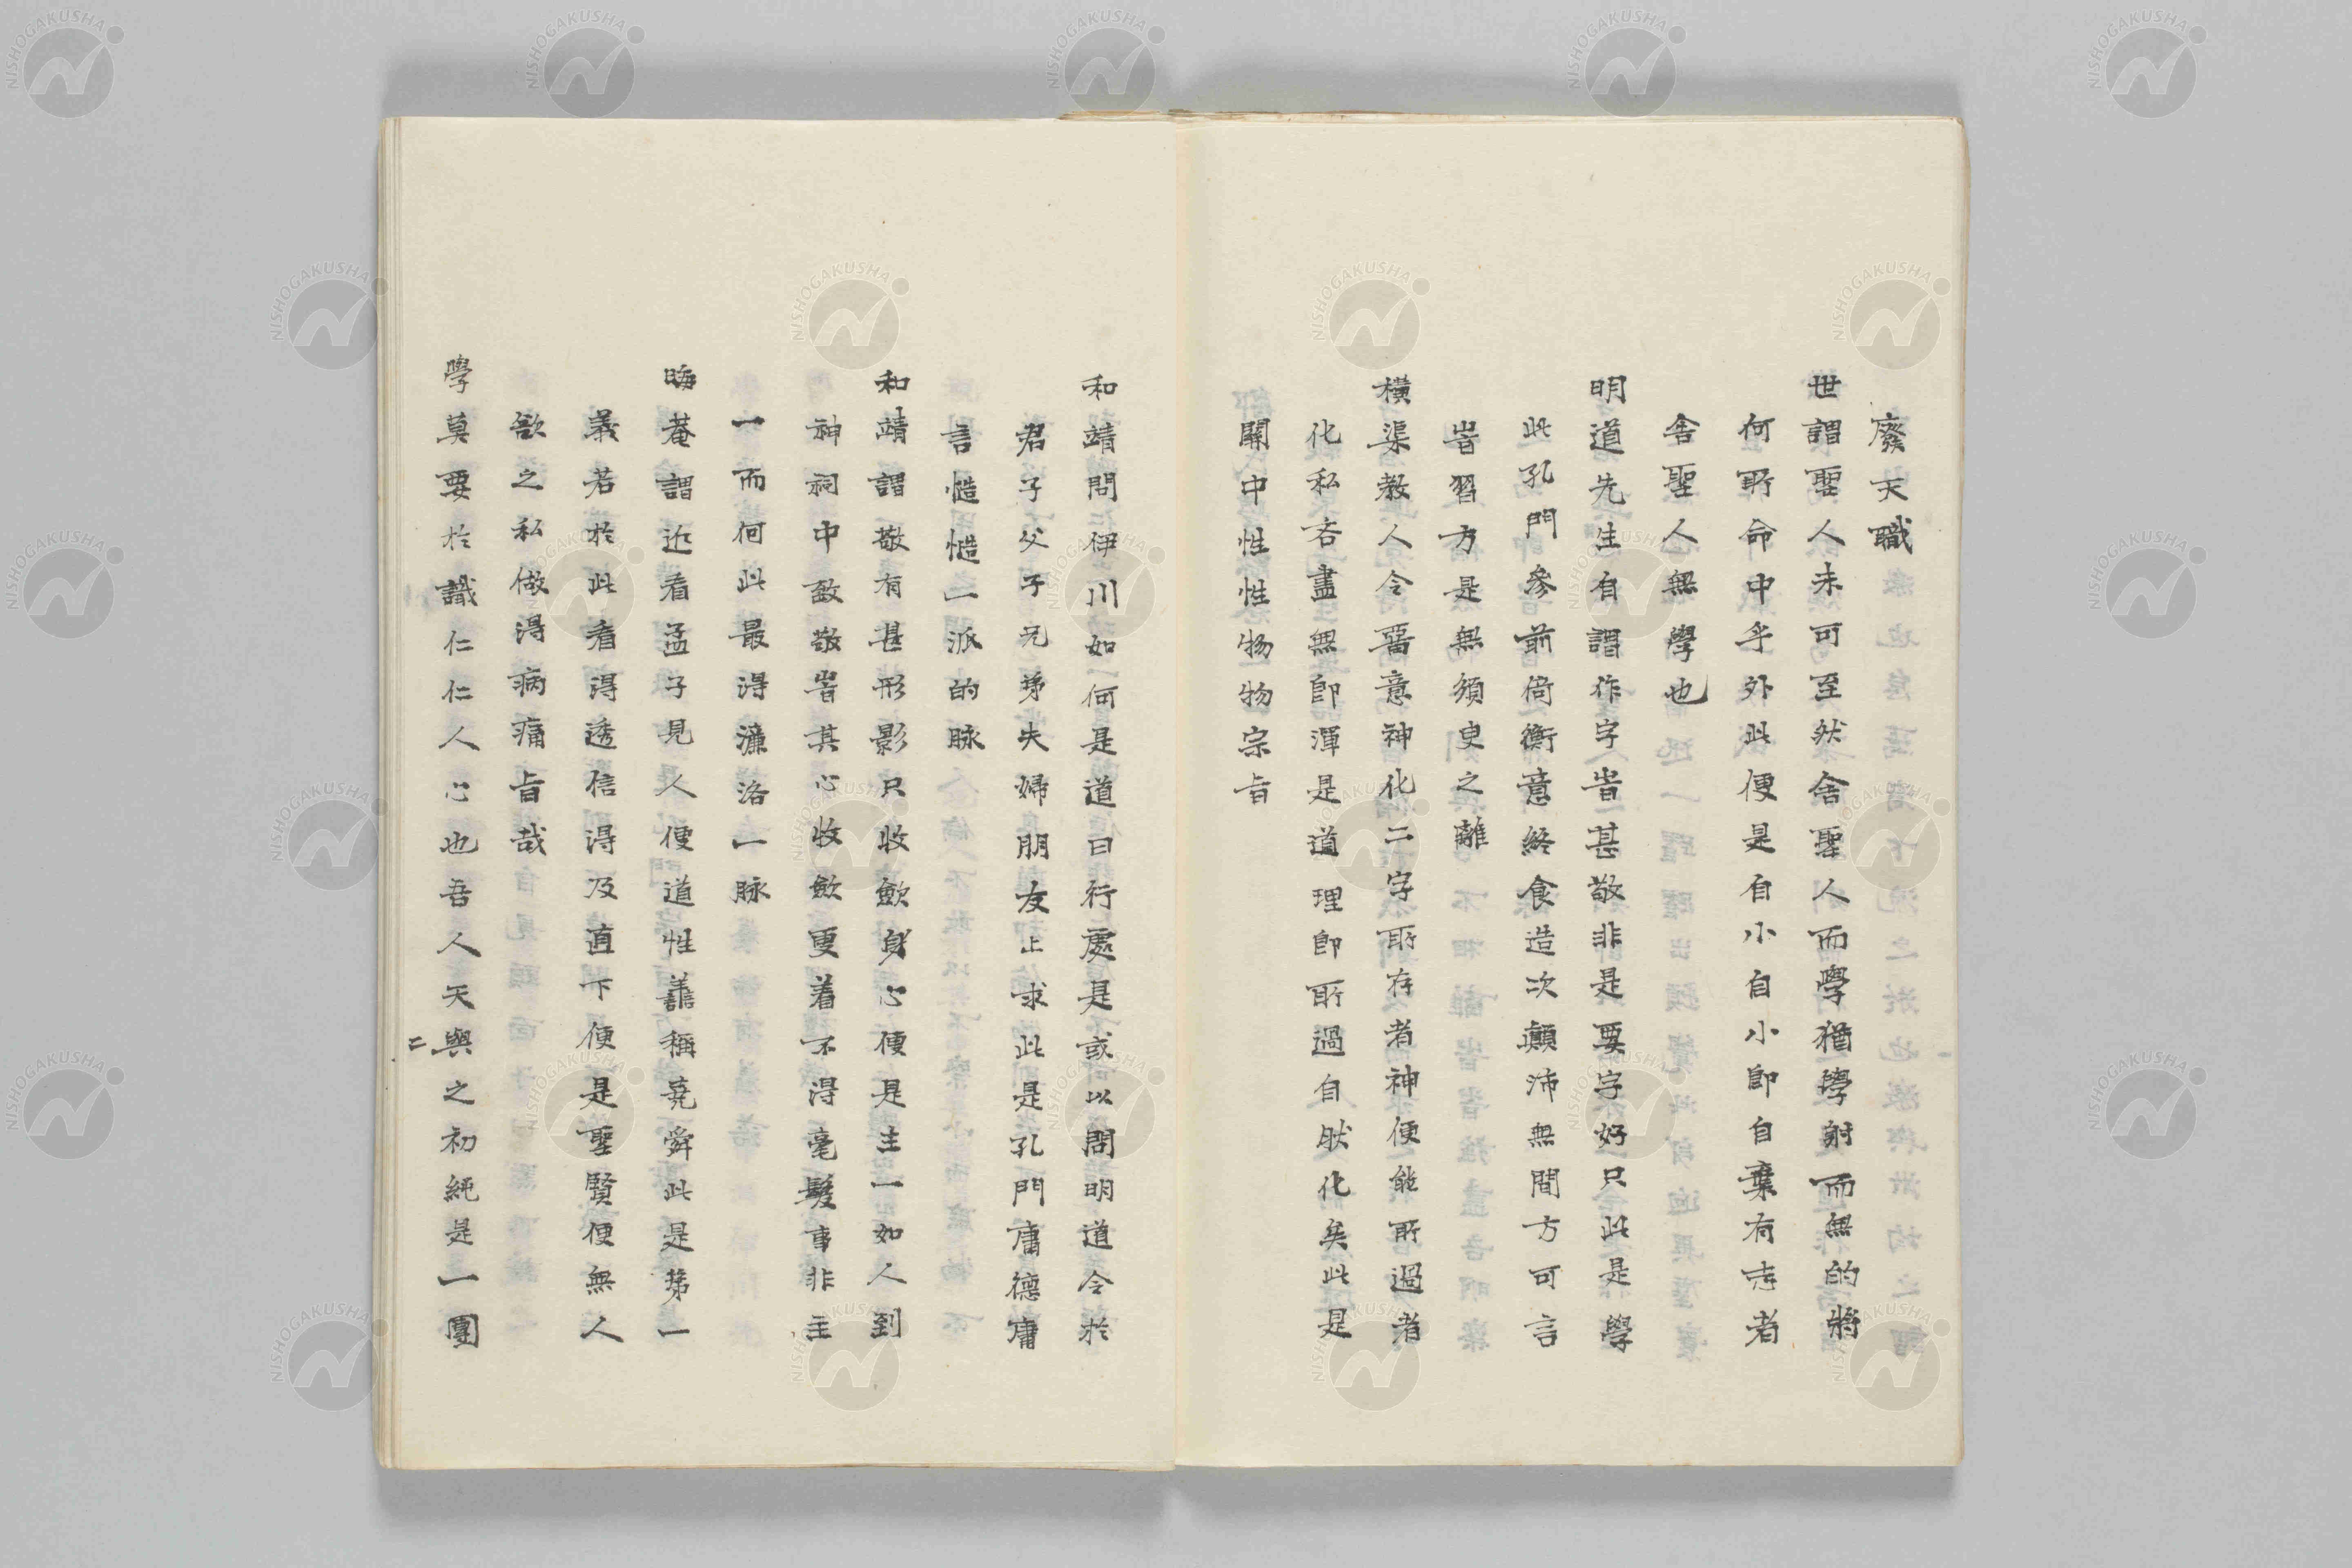 廢天職
世謂聖人未可至然舍聖人而學猶學射而無的將
何所命中乎外此便是自小自小即自棄有志者
舍聖人無學也
明道先生有謂作字昔甚敬非是要字好只此是學
此孔門參前倚衡意終食造次顛沛無間方可言
昔習方是無須臾之離
橫渠教人令畜意神化二字所存者神便能所過者
化私吝盡無即渾是道理即所過自然化矣此是
關中性性物物宗旨
和靖問伊川如何是道曰行處是或以問明道令於
君子父子兄弟夫婦朋友上求此是孔門庸德庸
言慥慥一派的脉
和靖謂敬有甚形影只收斂身心便是主一如人到
神祠中致敬昔其心收斂更着不得毫髮事非主
一而何此最得濂洛一脉
晦菴謂近看孟子見人便道性善稱堯舜此是第一
義若於此看得透信得及直下便是聖賢便無人
欲之私做得病痛旨哉
學莫要於識仁仁人心也吾人天與之初純是一團
二
NISHOGAKUSHA